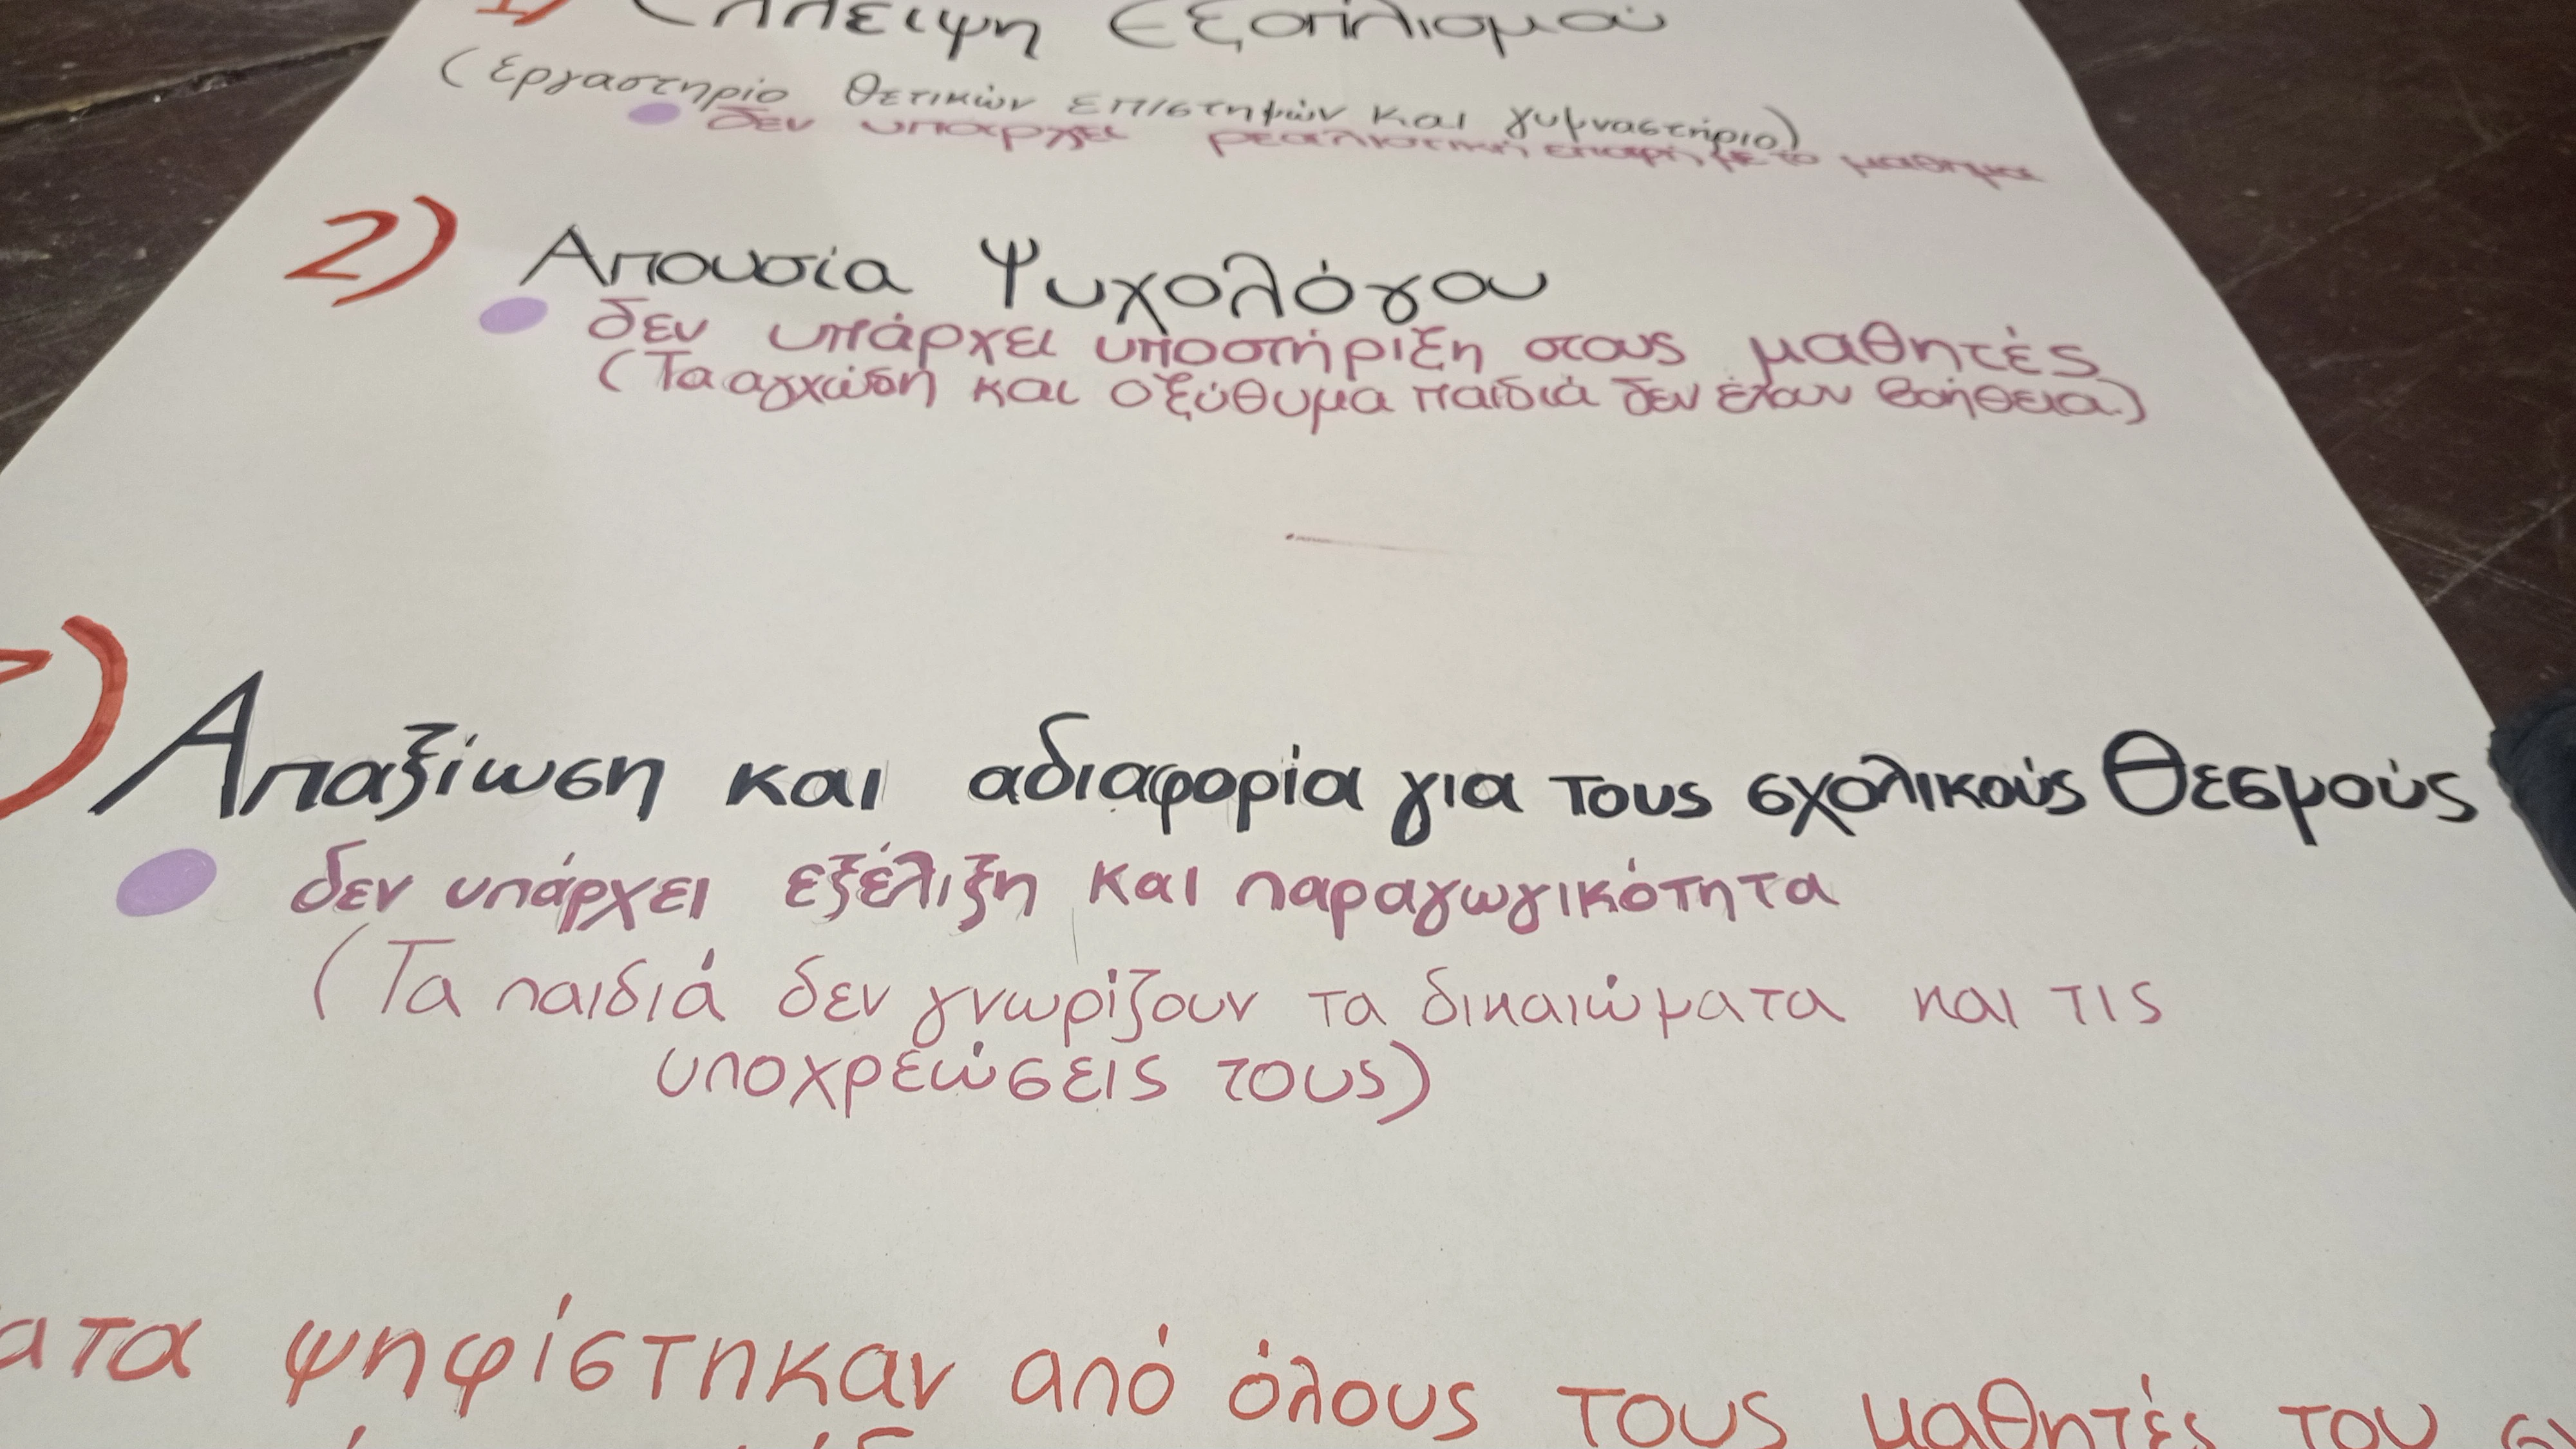 1) Έλλειψη Εξοπλισμού
(Εργαστηρίο θετικών επιστημών και γυμναστήριο)
δεν υπάρχει ρεαλιστική επαφή με το μάθημα
2) Απουσία Ψυχολόγου
δεν υπάρχει υποστήριξη στους μαθητές
(Τα αγχώδη και οξύθυμα παιδιά δεν έχουν βοήθεια.)
) Απαξίωση και αδιαφορία για τους σχολικούς Θεσμούς
δεν υπάρχει εξέλιξη και παραγωγικότητα
(Τα παιδιά δεν γνωρίζουν τα δικαιώματα και τις
υποχρεώσεις τους)
ατα ψηφίστηκαν από όλους τους μαθητές του